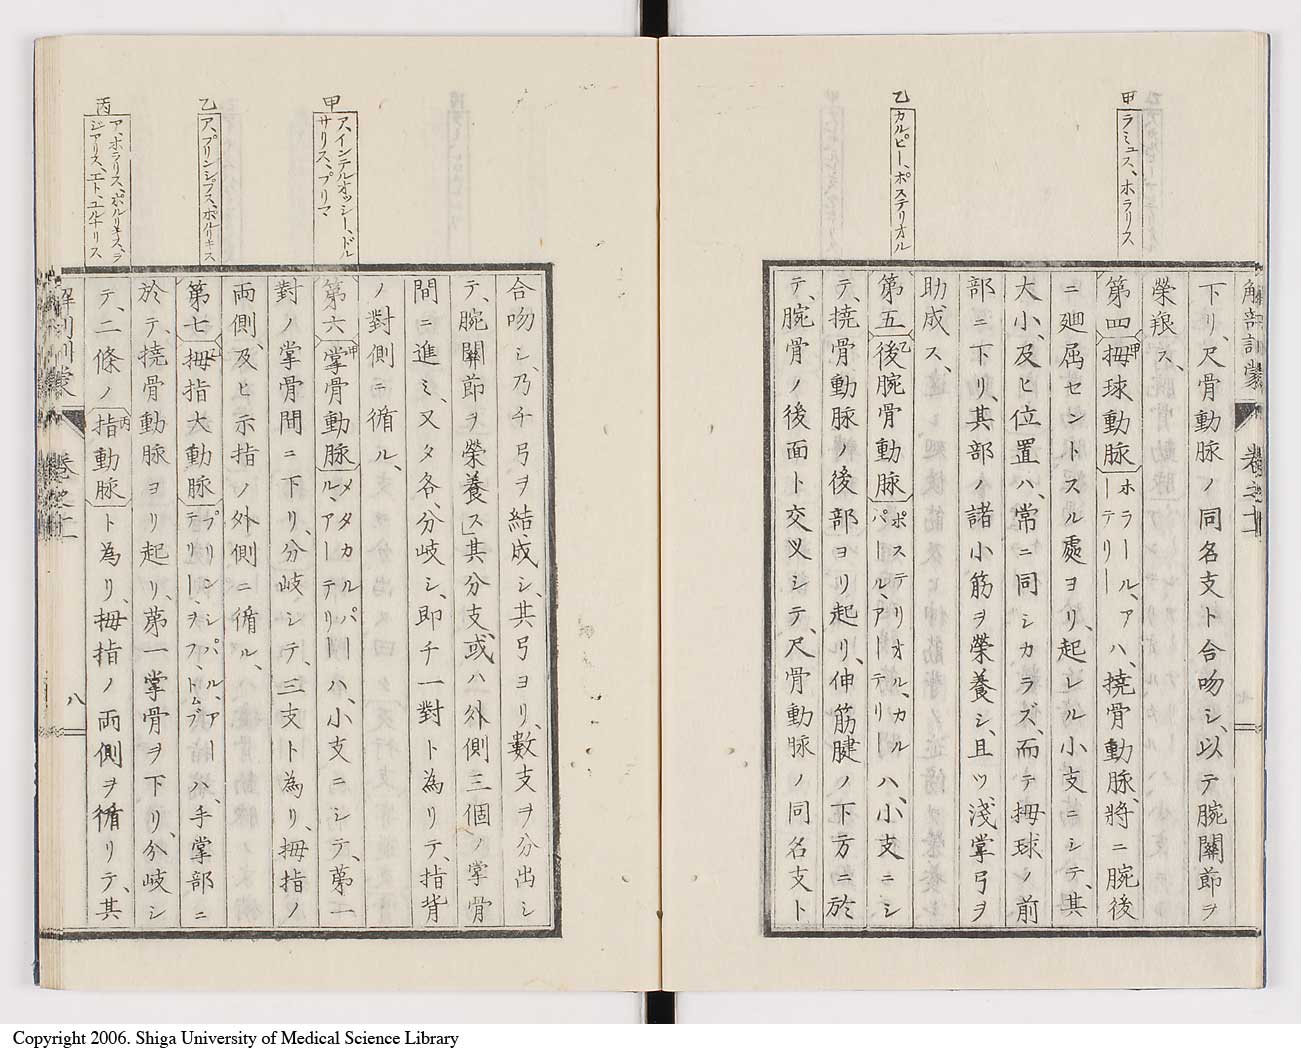 甲
ラミュス、ホラリス
乙
カルピー、ポステリオル
解剖訓蒙
下リ、尺骨動脈ノ同名支ト合吻シ、以テ腕關節ヲ
榮養ス、
第四拇球動脈ホラール、アーテリーハ、撓骨動脈、將ニ腕後
ニ廻屈セントスル處ヨリ、起レル小支ニシテ、其
大小、及ヒ位置ハ、常ニ同シカラズ、而テ拇球ノ前
部ニ下リ、其部ノ諸小筋ヲ榮養シ、且ツ淺掌弓ヲ
助成ス、
第五後腕骨動脈ポステリオル、カルパール、アーテリーハ、小支ニシ
テ、撓骨動脈ノ後部ヨリ起リ、伸筋腱ノ下方ニ於
テ、腕骨ノ後面ト交叉シテ、尺骨動脈ノ同名支ト
甲
ア、インテルオッシー、ドル
サリス、プリマ
乙
ア、プリンシプス、ポルリキス
丙
ア、ホラリス、ポルリキス、ラ
ジアリス、エト、ユルナリス
合吻シ、乃チ弓ヲ結成シ、其弓ヨリ、數支ヲ分出シ
テ、腕關節ヲ榮養ス」其分支、或ハ外側三個ノ掌骨
間ニ進ミ、又タ各、分岐シ、即チ一對ト為リテ、指背
ノ對側ニ循ル、
第六掌骨動脈メタカルパール、アーテリーハ、小支ニシテ、第一
對ノ掌骨間ニ下リ、分岐シテ、三支ト為リ、拇指ノ
両側、及ヒ示指ノ外側ニ循ル、
第七拇指大動脈プリンシパル、アーテリー、ヲフ、トムブハ、手掌部ニ
於テ、撓骨動脈ヨリ起リ、第一掌骨ヲ下リ、分岐シ
テ、二條ノ指動脈ト為リ、拇指ノ両側ヲ循リテ、其
八
Copyright 2006. Shiga University of Medical Science Library